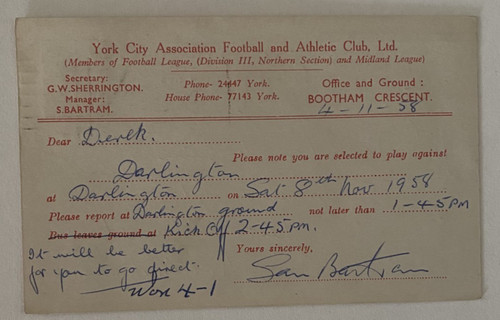 York City Association Football and Athletic Club, Ltd.
(Members of Football League, (Division III, Northern Section) and Midland League)
Secretary:
G.W.SHERRINGTON.
Manager:
S.BARTRAM.
Phone- 24447 York.
House Phone- 77143 York.
Office and Ground :
BOOTHAM CRESCENT.
4-11-58
Dear Derek.
Please note you are selected to play against
Darlington
at Darlington on Sat 8th Nov 1958
Please report at Darlington ground not later than 1-45 PM
Bus leaves ground at Kick Off 2-45 PM.
It will be better
for you to go direct.
Yours sincerely,
Sam Bartram
Won 4-1